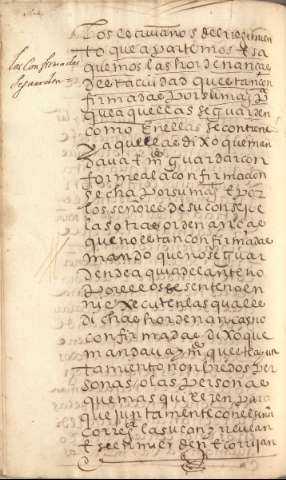 Las confirmadas
se guarden =
Los escrivanos del regimien
to que apartemos e sa
quemos las hordenanças
desta çiudad que estan con
firmadas por su mag
que aquellas se guarden
como en ellas se contiene
y aquellas dixo que man
dava e m guardar con
forme a la confirmacion
fecha por su mag e por
los señores de su consejo
las otras ordenanças
que no estan confirmadas
mando que no se guar
den de aqui adelante no
por ellos se sentençen
ni executen las quales
dichas hordenanças no
confirmadas dixo que
mandava e m que este ayun
tamiento nonbre dos per
sonas o las personas
que mas quisieren para
que juntamente con el señor
corre las vean y
e se enmienden e corrijan